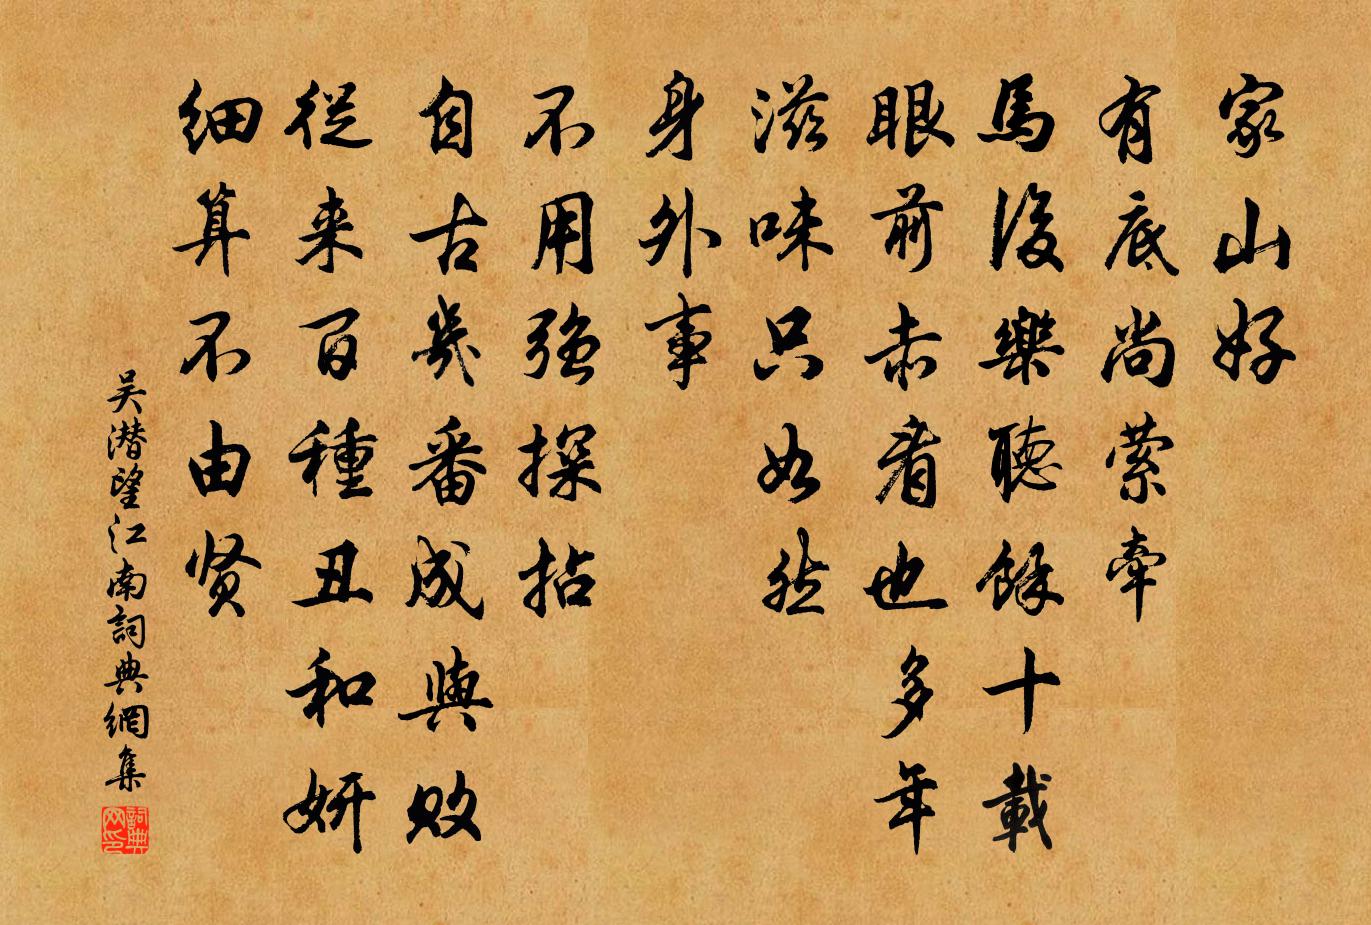 家山好
有底尚萦牽
馬後樂聽餘十載
眼前赤看也多年
滋味只如然
身外事
不用強探拈
自古幾番成與敗
從来百種丑和妍
细算不由贤
吴潜望江南詞典網集
詞典网印